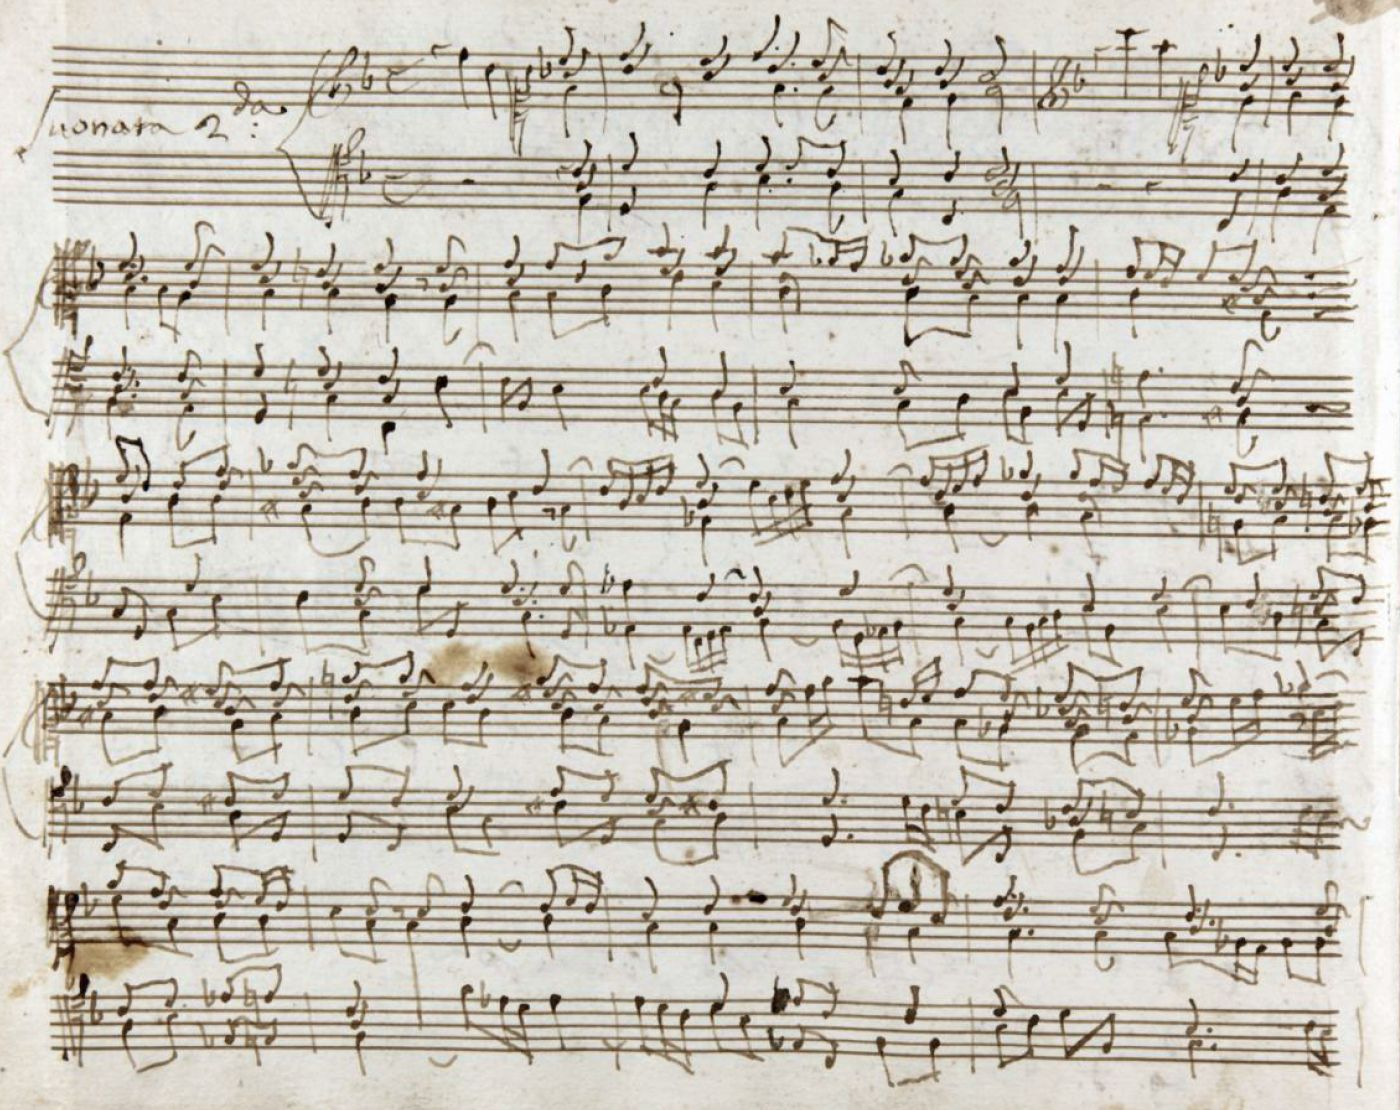 Suonata 2da: